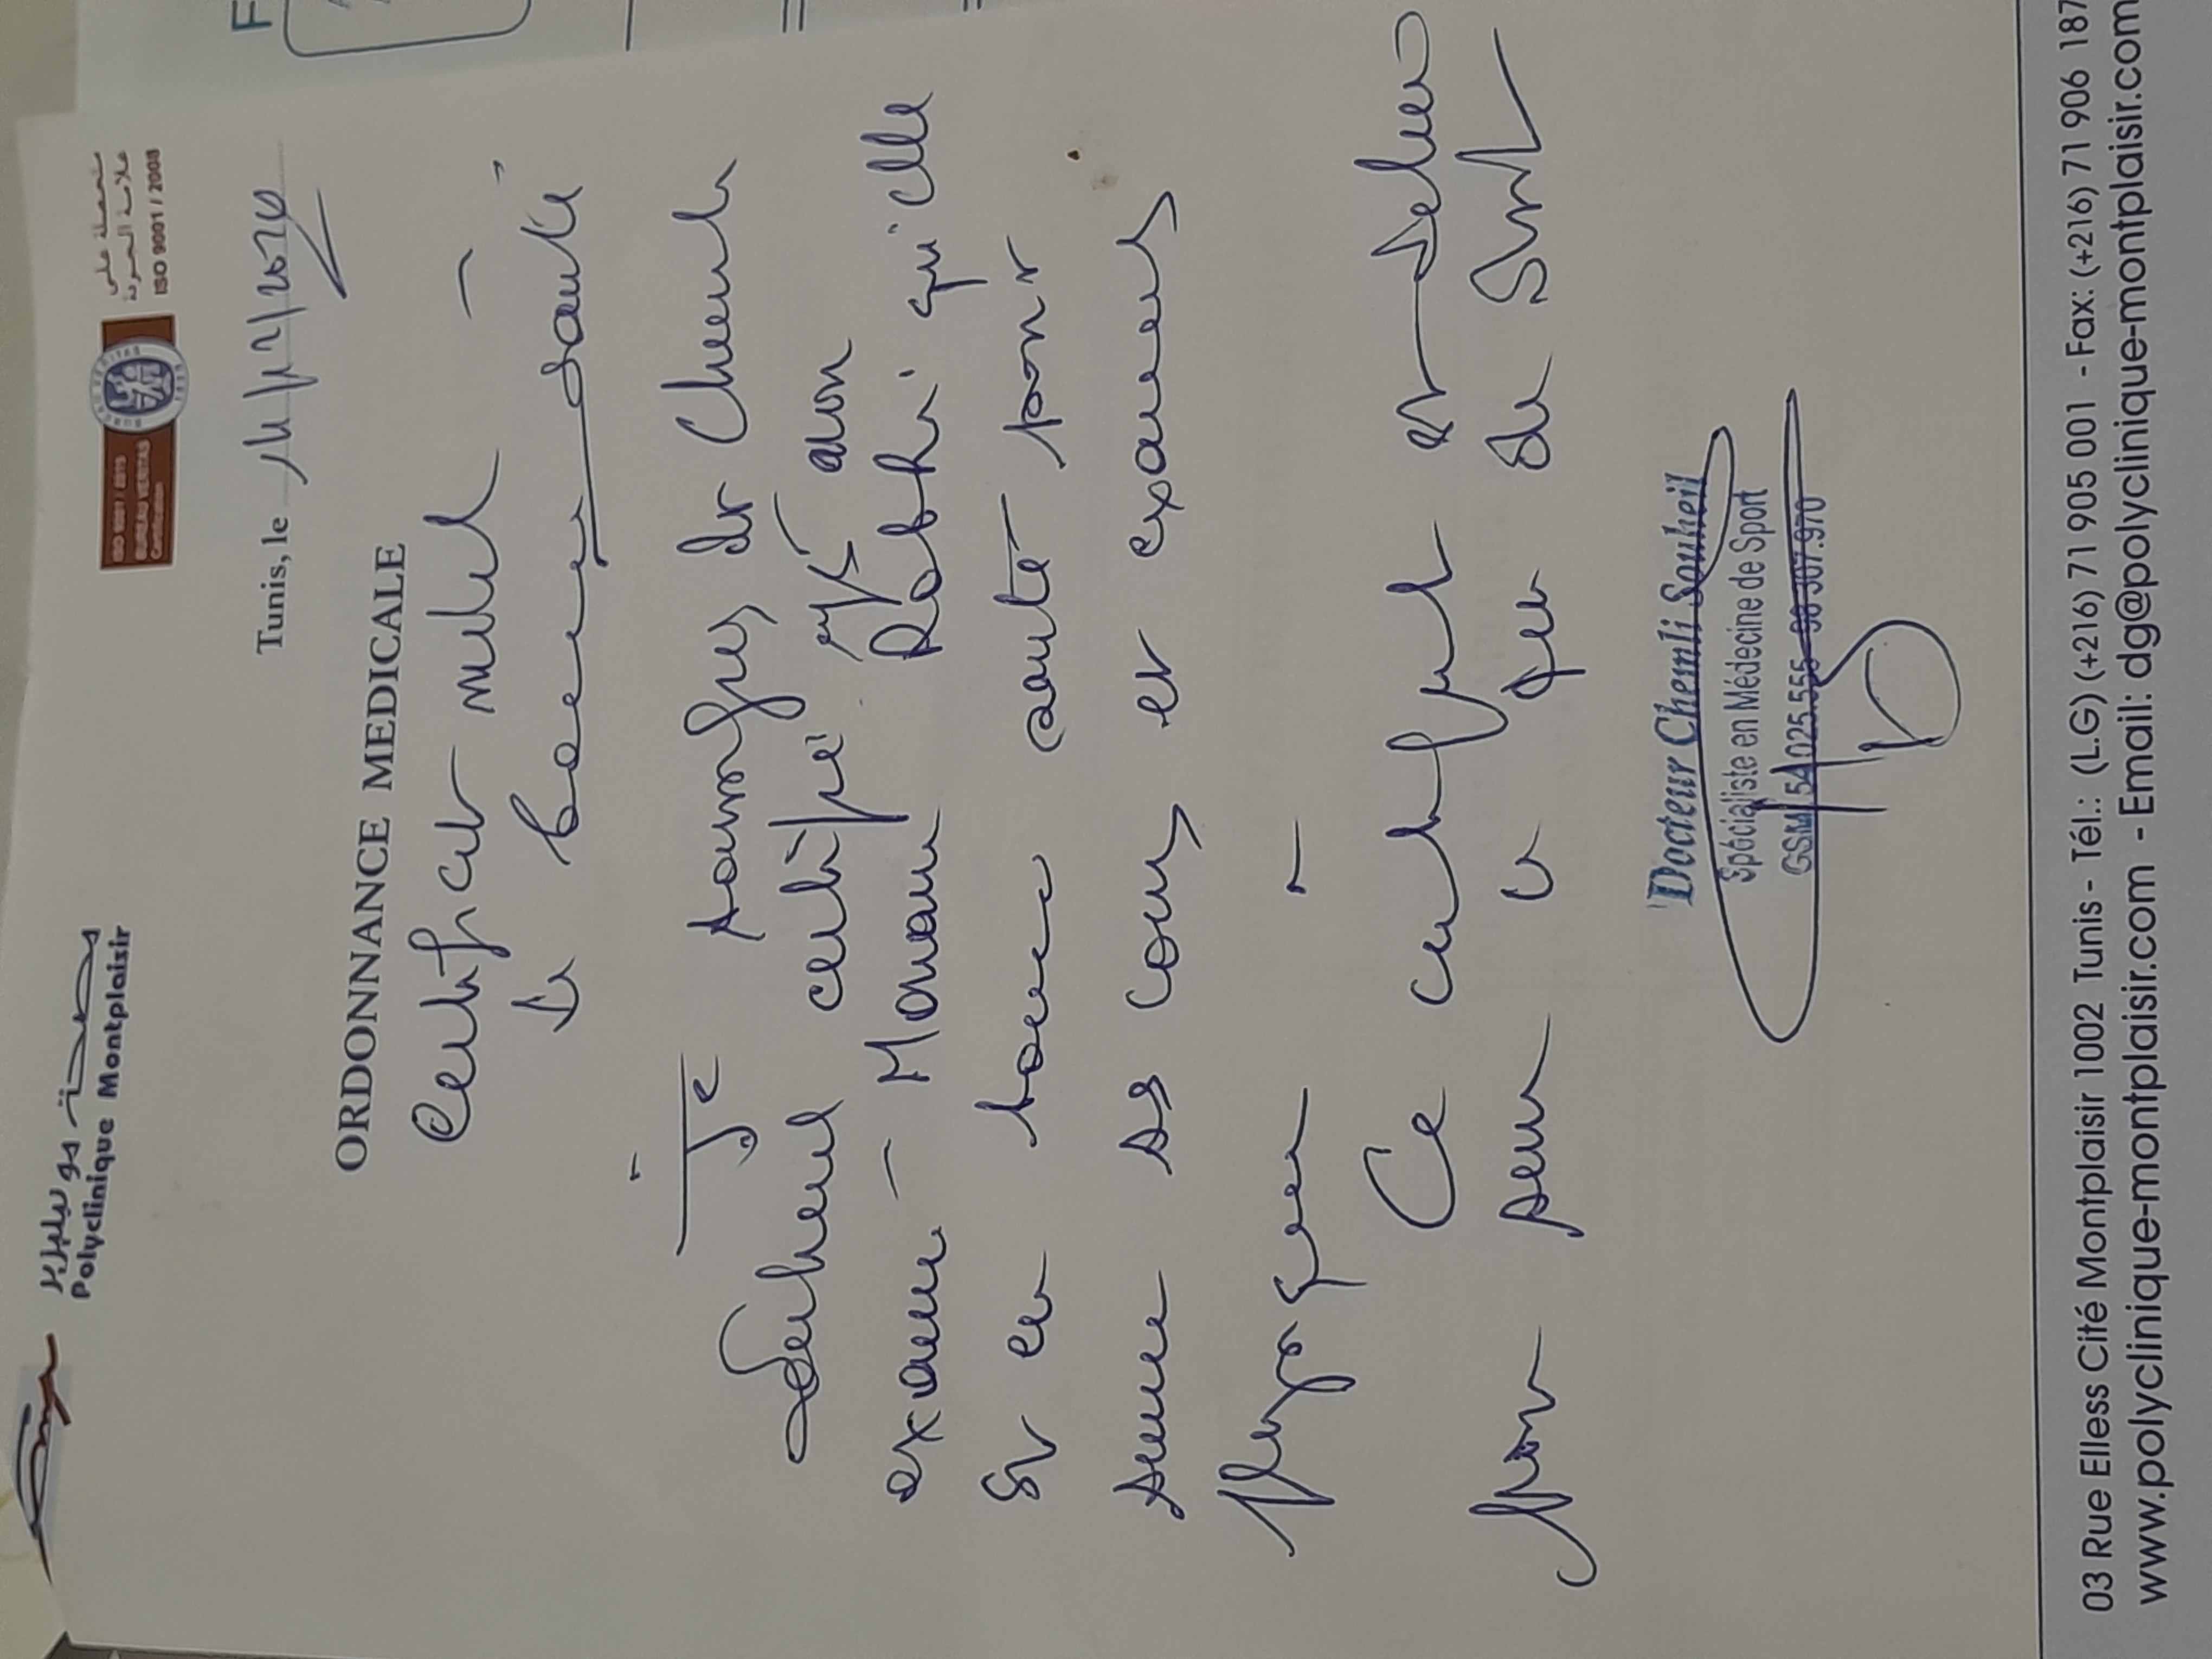 مصحة مونبليزير
Polyclinique Montplaisir
متحصلة على
علامة الجودة
ISO 9001 / 2008
BUREAU VERITAS
Certification
Tunis, le
ORDONNANCE MEDICALE
Certificat médical
de bonne santé
Je soussigné Dr Chemli
Souheil certifié avoir
examiné Mariam qu'elle
est en bonne santé pour
suivre ses cours et examens
Ce certificat est délivré
pour servir de droit
Docteur Chemli Souheil
Spécialiste en Médecine de Sport
GSM 54 025.555
03 Rue Elless Cité Montplaisir 1002 Tunis - Tél.: (L.G) (+216) 71 905 001 - Fax: (+216) 71 906 187
www.polyclinique-montplaisir.com - Email: dg@polyclinique-montplaisir.com